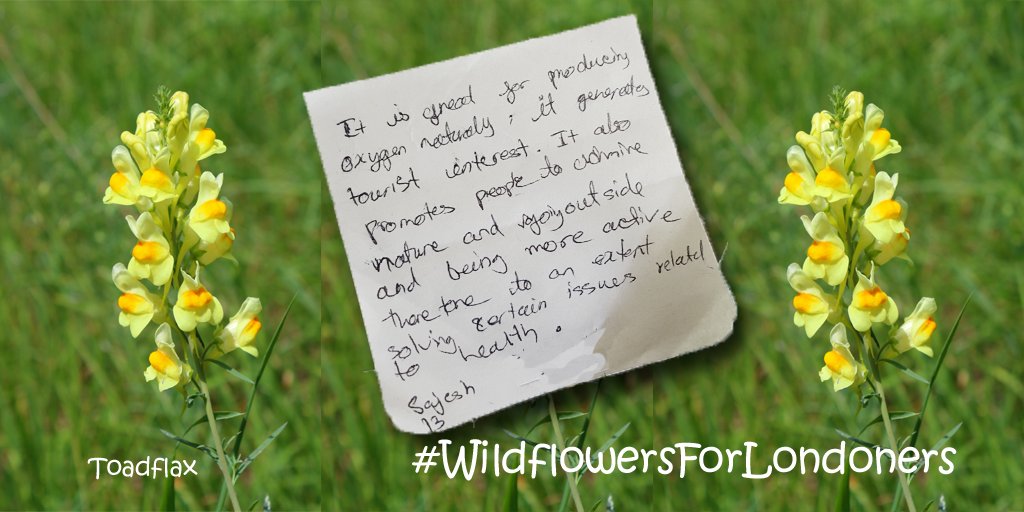 It is great for producing
oxygen naturally, it generates
tourist interest. It also
promotes people to admire
nature and outside
and being more active
therefore to an extent
solving certain issues related
to health.
Sajesh
13
Toadflax
#WildflowersForLondoners